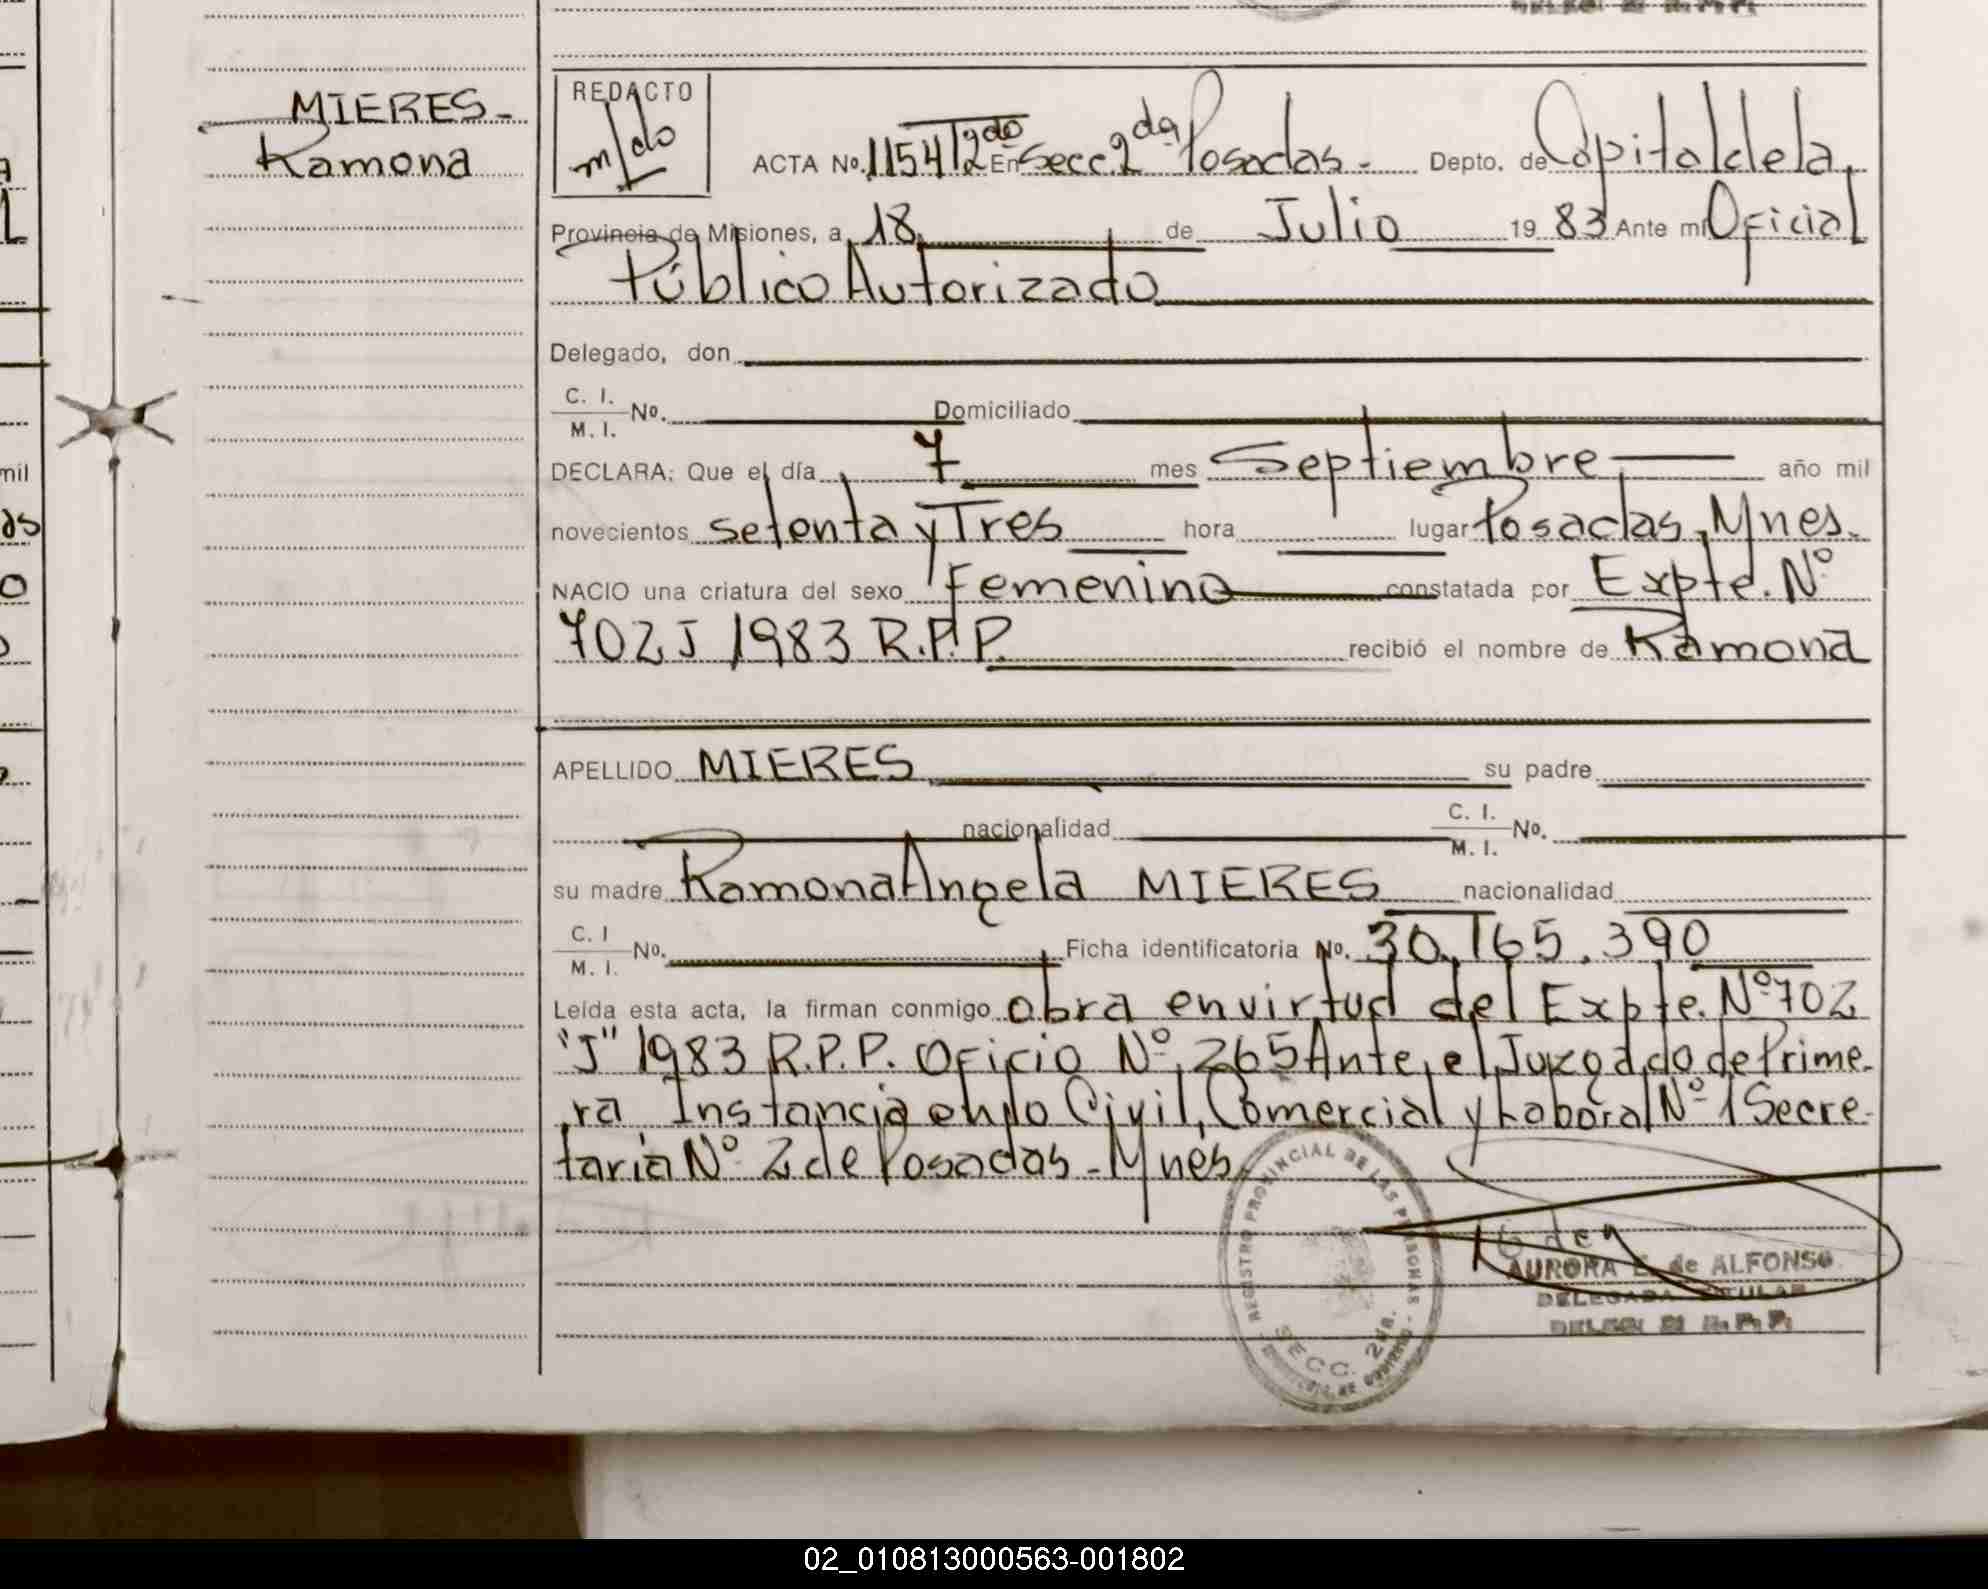 MIERES-
Ramona
REDACTO
ACTA No. 1154 T 2do En Secc. 2da Posadas.- Depto. de Capital de la
Provincia de Misiones, a 18 de Julio 1983 Ante mí Oficial
Público Autorizado
Delegado, don
C. I.
M. I. No. Domiciliado
DECLARA: Que el día 7 mes Septiembre año mil
novecientos setenta y Tres hora lugar Posadas, Mnes.
NACIO una criatura del sexo Femenino constatada por Expte. Nº
702 J 1983 R.P.P. recibió el nombre de Ramona
APELLIDO MIERES su padre
nacionalidad C. I.
M. I. No.
su madre Ramona Angela MIERES nacionalidad
C. I
M. I. No. Ficha identificatoria No. 30.165.390
Leída esta acta, la firman conmigo obra en virtud del Expte. Nº 702
"J" 1983 R.P.P. Oficio Nº 265 Ante el Juzgado de Prime-
ra Instancia en lo Civil, Comercial y Laboral Nº 1 Secre-
taria Nº 2 de Posadas - Mnes.
REGISTRO PROVINCIAL DE LAS PERSONAS
SECC. 2da.
AURORA E. de ALFONSO
DELEGADA TITULAR
R. P. P.
02_010813000563-001802